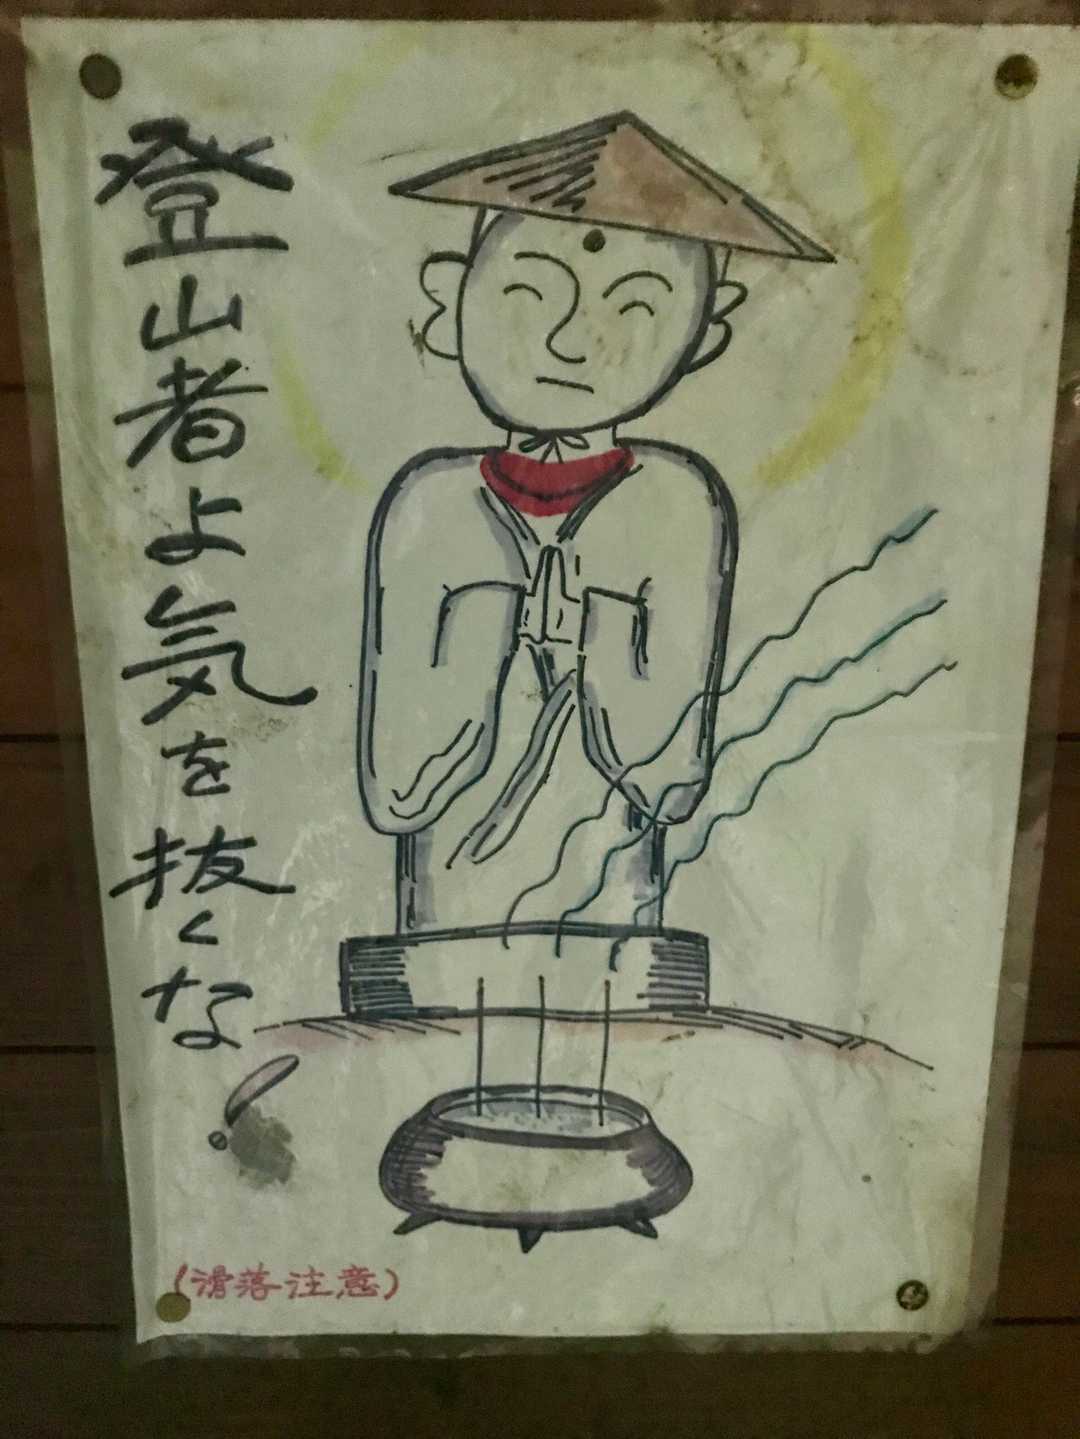 登山者よ気を抜くな!
(滑落注意)